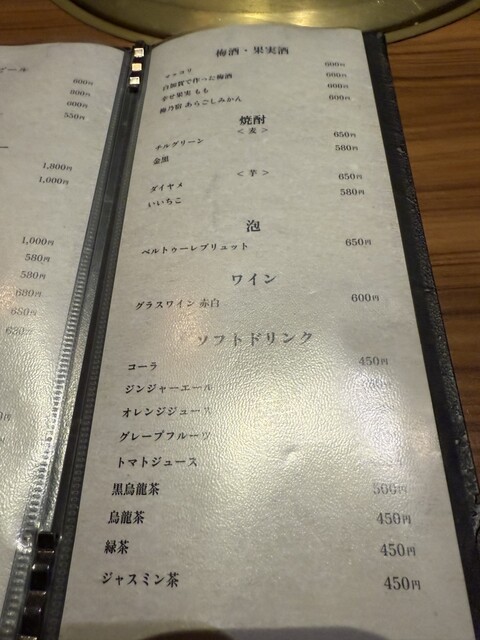 ール
600円
600円
600円
550円
1,800円
1,000円
1,000円
580円
580円
680円
680円
620円
梅酒・果実酒
マッコリ 600円
白加賀で作った梅酒 600円
幸せ果実 もも 600円
梅乃宿 あらごしみかん 600円
焼酎
<麦>
チルグリーン 650円
金黒 580円
<芋>
ダイヤメ 650円
いいちこ 580円
泡
ベルトゥーレブリュット 650円
ワイン
グラスワイン 赤白 600円
ソフトドリンク
コーラ 450円
ジンジャーエール
オレンジジュース
グレープフルーツ
トマトジュース
黒烏龍茶 500円
烏龍茶 450円
緑茶 450円
ジャスミン茶 450円